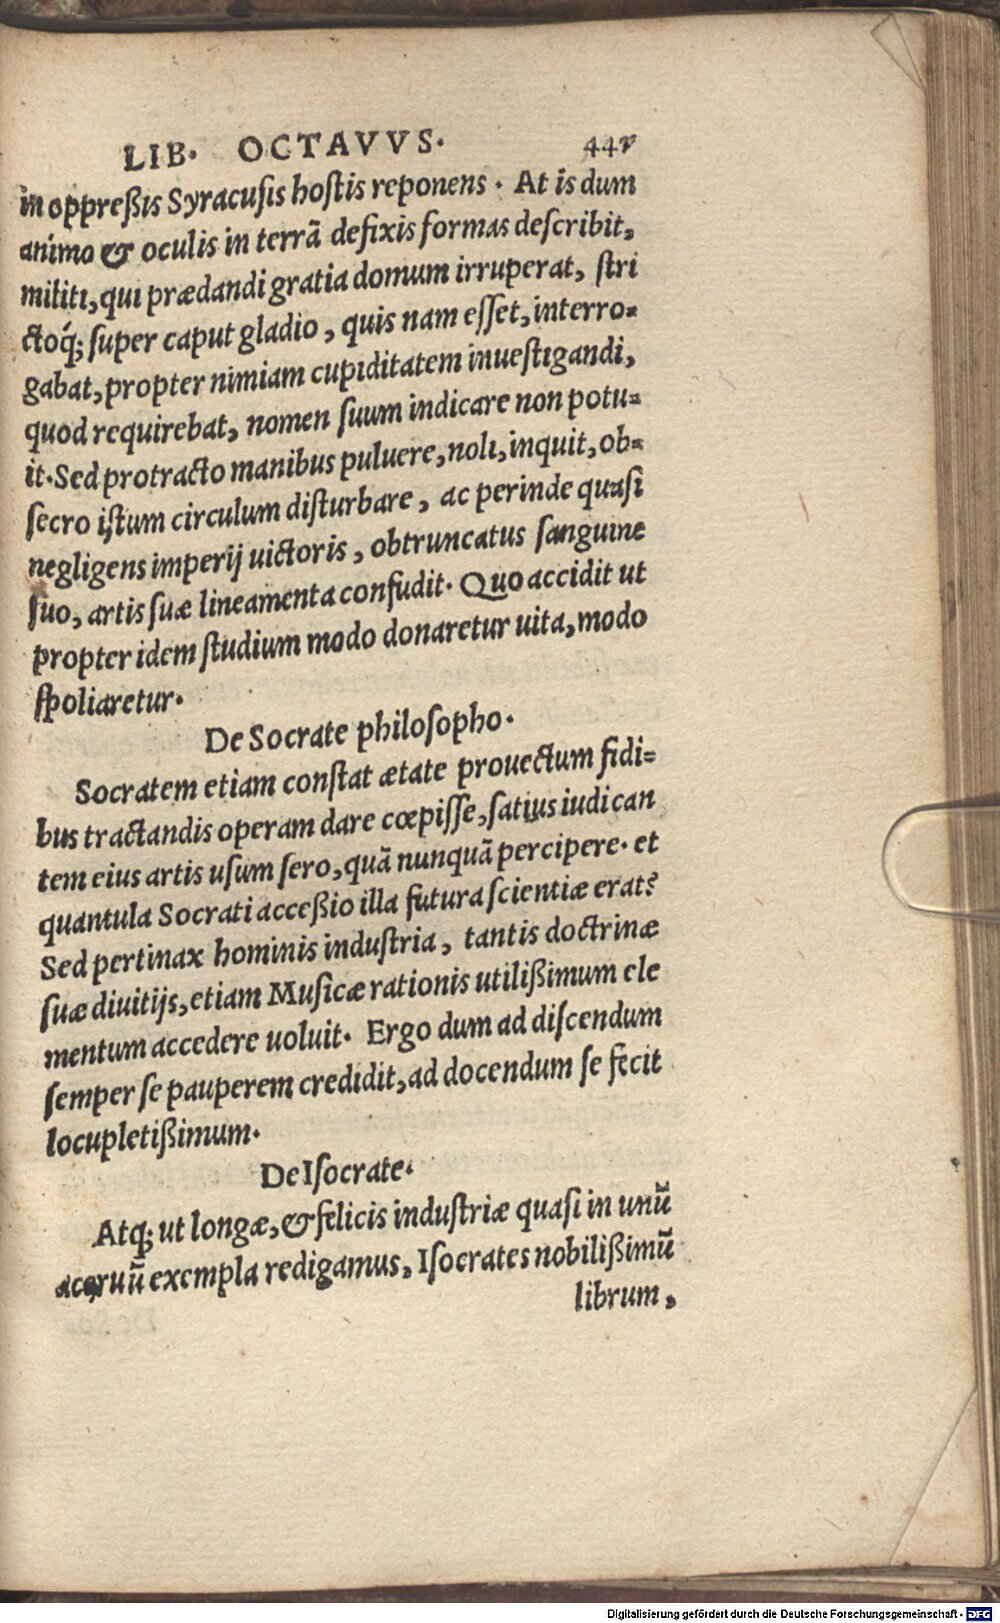 LIB. OCTAVVS. 44v
in oppreßis Syracusis hostis reponens. At is dum
animo & oculis in terrã defixis formas describit,
militi, qui prædandi gratia domum irruperat, stri
ctoq́; super caput gladio, quis nam esset, interro-
gabat, propter nimiam cupiditatem inuestigandi,
quod requirebat, nomen suum indicare non potu-
it. Sed protracto manibus puluere, noli, inquit, ob-
secro istum circulum disturbare, ac perinde quasi
negligens imperij uictoris, obtruncatus sanguine
suo, artis suæ lineamenta confudit. Quo accidit ut
propter idem studium modo donaretur uita, modo
spoliaretur.
De Socrate philosopho.
Socratem etiam constat ætate prouectum fidi-
bus tractandis operam dare cœpisse, satius iudican
tem eius artis usum sero, quã nunquã percipere. et
quantula Socrati acceßio illa futura scientiæ erat?
Sed pertinax hominis industria, tantis doctrinæ
suæ diuitijs, etiam Musicæ rationis utilißimum ele
mentum accedere uoluit. Ergo dum ad discendum
semper se pauperem credidit, ad docendum se fecit
locupletißimum.
De Isocrate.
Atq; ut longæ, & felicis industriæ quasi in unũ
aceruũ exempla redigamus, Isocrates nobilißimũ
librum,
Digitalisierung gefördert durch die Deutsche Forschungsgemeinschaft - DFG